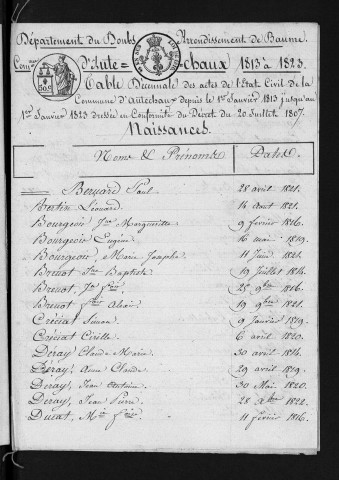 Département du Doubs Arrondissement de Baume
Com.ne d'Aute=chaux 1813 à 1823.
Table Décennale des actes de l'Etat Civil de la
Commune d'autechaux depuis le 1er Janvier 1813 jusqu'au
1er Janvier 1823 dressée en Conformité du Décret du 20 Juillet 1807.
Naissances.
Noms & Prénoms Dates.
Bernard Paul 28 avril 1821.
Bertin Léonard 14 Aout 1821.
Bourgeois Jne Margueritte 9 février 1816.
Bourgeois Eugène 16 mai 1819.
Bourgeois, Marie Josephe 11 Juin 1821.
Breuot Jn Baptiste 19 Juillet 1814.
Breuot, Jn fois 25 9bre 1816.
Breuot fois Alexis 19 9bre 1821.
Créciat Simon 9 Janvier 1819.
Créciat Cirille 6 avril 1820.
Déray Claude Marie 30 avril 1814.
Déray, Anne Claude 29 avril 1819.
Déray, Jean Antoine 30 Mai 1820.
Déray, Jean Pierre 28 Xbre 1822.
Ducat, Mie foise 11 février 1816.